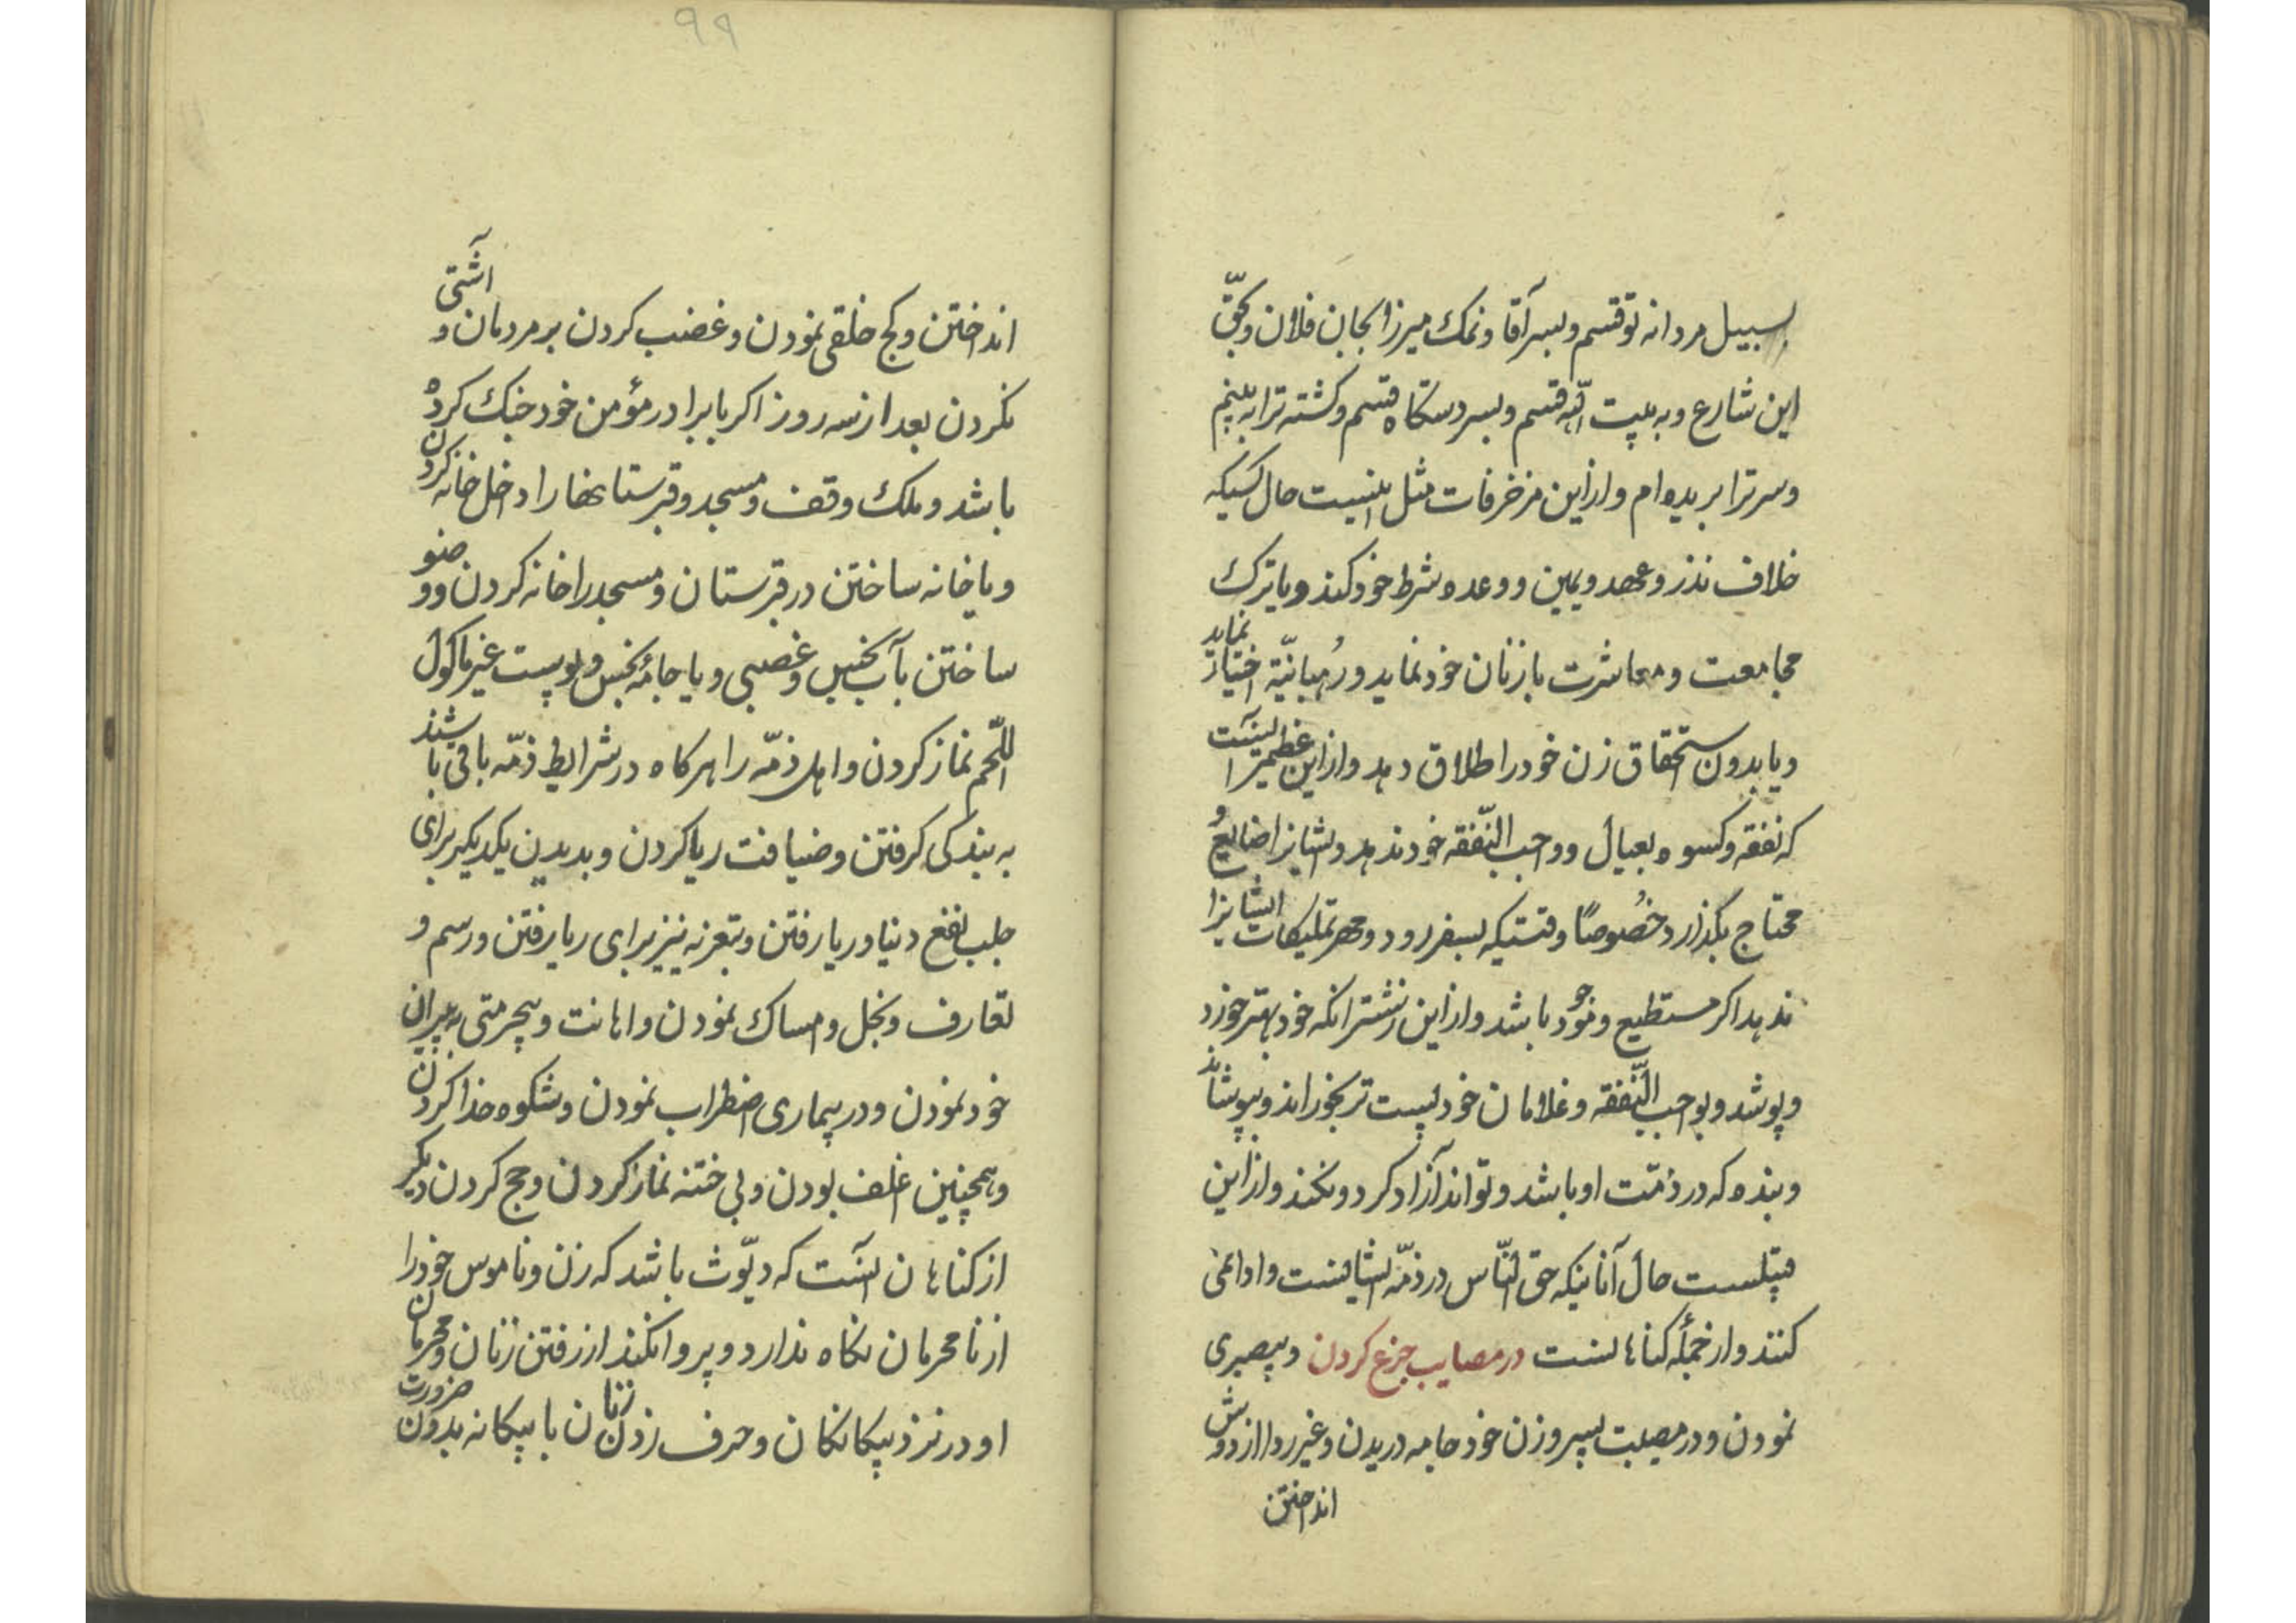 بسبیل مردانه تو قسم و بسر آقا و نمک میرزا بجان فلان و بحقّ
این شارع و به بیت اللّه قسم و بسر دستکاه قسم و کشته ترا به بینم
و سر ترا بریده‌ام و از این مزخرفات مثل اینست حال کسیکه
خلاف نذر و عهد و یمین و وعده و شرط خود کند و یا ترک
مجامعت و معاشرت با زنان خود نماید و رُهبانیّة اختیار نماید
و یا بدون استحقاق زن خود را طلاق دهد و از این عظیمتر آنست
که نفقه و کسوه بعیال و واجب النّفقه خود ندهد و ایشانرا ضایع و
محتاج بکذارد خصُوصًا وقتیکه بسفر رود و مهر تملیکات ایشانرا
ندهد اکر مستطیع و موجود باشد و از این زشتتر آنکه خود بهتر خورد
و پوشد و بواجب النّفقه و غلامان خود پست تر بخوراند و بپوشاند
و بنده که در ذمّت او باشد و تواند آزاد کرد و نکند و از این
قبیلست حال آنانیکه حق النّاس در ذمّه ایشانست و ادا نمی
کنند و از جمله کناهانست در مصایب جزع کردن و بیصبری
نمودن و در مصیبت پسر و زن خود جامه دریدن و غیر ردا از دوش
انداختن
۹۹
انداختن و کج خلقی نمودن و غضب کردن بر مردمان و آشتی
نکردن بعد از سه روز اکر با برادر مؤمن خود جنک کرده
باشد و ملک وقف و مسجد و قبرستانها را داخل خانه کردن
و یا خانه ساختن در قبرستان و مسجد را خانه کردن و وضو
ساختن بآب نجس و غصبی و یا جامهٔ نجس و پوست غیر ماکول
اللّحم نماز کردن و اهل ذمّه را هرکاه در شرایط ذمّه باقی باشند
به بندکی کرفتن و ضیافت ریا کردن و بدیدن یکدیکر برای
جلب نفع دنیا و ریا رفتن و بتعزیه نیز برای ریا رفتن و رسم و
تعارف و بخل و امساک نمودن و اهانت و بیحرمتی به پیران
خود نمودن و در بیماری اضطراب نمودن و شکوه خدا کردن
و همچنین اغلف بودن و بی ختنه نماز کردن و حج کردن دیکر
از کناهان آنست که دیّوث باشد که زن و ناموس خود را
از نامحرمان نکاه ندارد و پروا نکند از رفتن زنان و محرمان
او در نزد بیکانکان و حرف زدن زنان با بیکانه بدون ضرورت